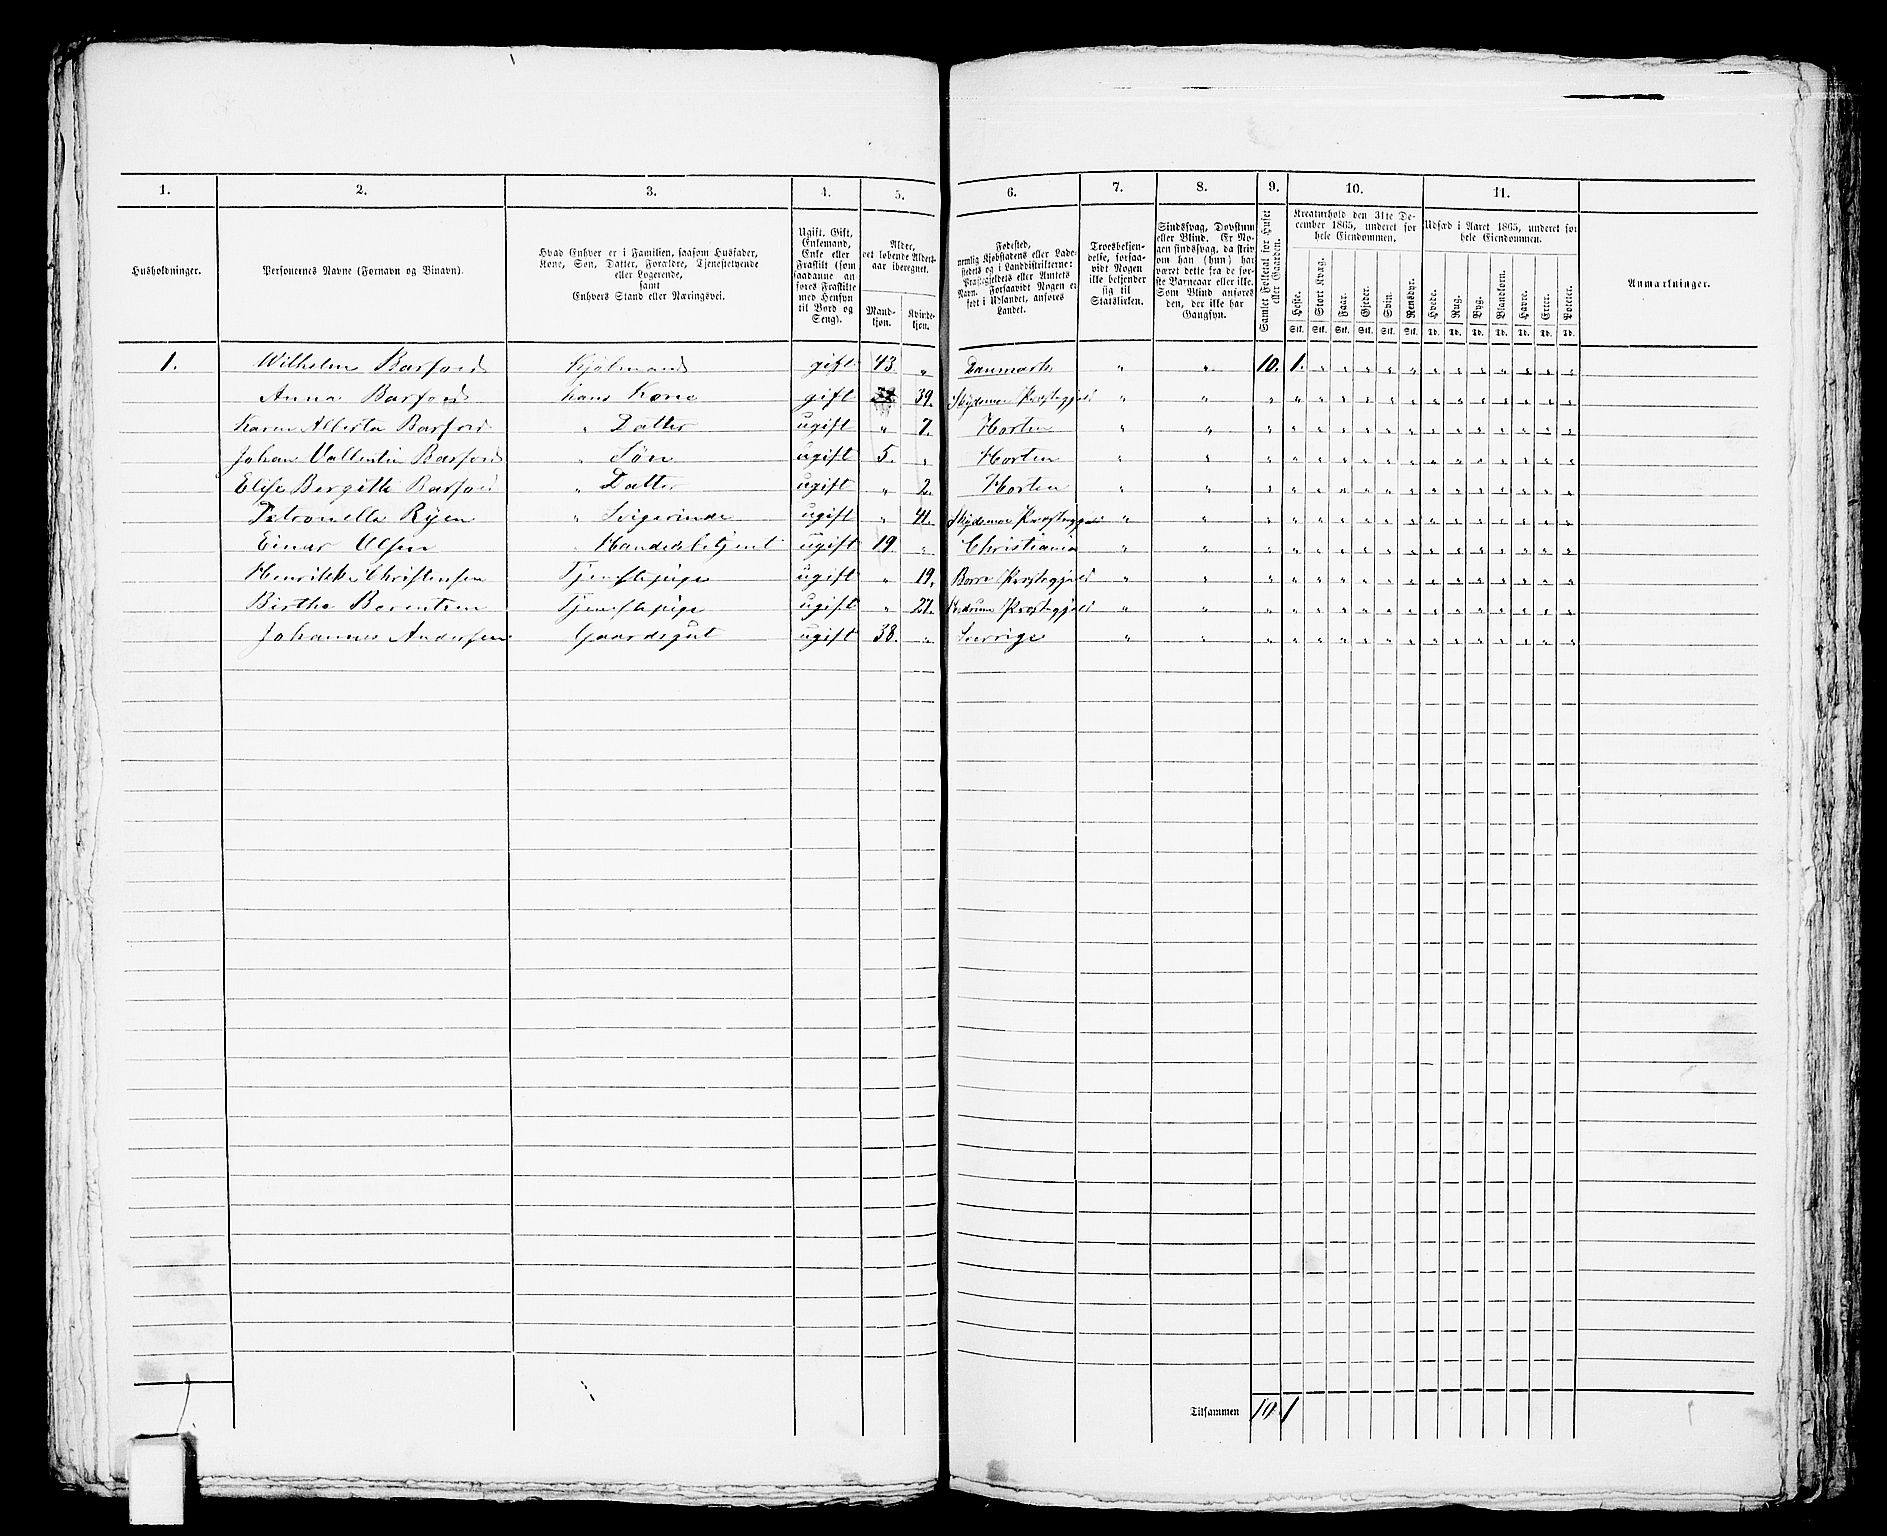 1. 2. 3. 4. 5. 6. 7. 8. 9. 10. 11.
Husholdninger.
Personernes Navne (Fornavn og Binavn).
Hvad Enhver er i Familien, saasom Husfader,
Kone, Søn, Datter, Forældre, Tjenestetyende
eller Logerende,
samt
Enhvers Stand eller Næringsvei.
Ugift, Gift,
Enkemand,
Enke eller
Fraskilt (som
saadanne an
føres Fraskilte
med Hensyn
til Bord og
Seng).
Alder,
det løbende Alders-
aar iberegnet.
Mand-
kjøn.
Kvinde-
kjøn.
Fødested,
nemlig Kjøbstadens eller Lade-
stedets og i Landdistrikterne:
Præstegjeldets eller Amtets
Navn. Forsaavidt Nogen er
født i Udlandet, anføres
Landet.
Troesbekjen-
delse, forsaa-
vidt Nogen
ikke bekjender
sig til
Statskirken.
Sindssvag, Døvstum
eller Blind. Er No-
gen sindssvag, da skriv
om han (hun) har
været dette fra de før-
ste Barneaar eller ikke.
Som Blind anføres
den, der ikke har
Gangsyn.
Samlet Folketal for Huset
eller Gaarden.
Kreaturhold den 31te De-
cember 1865, underet for
hele Eiendommen.
Heste. Stort Kvæg. Faar. Gjeder. Svin. Rensdyr.
Stk. Stk. Stk. Stk. Stk. Stk.
Udsæd i Aaret 1865, underet for
hele Eiendommen.
Hvede. Rug. Byg. Blandkorn. Havre. Erter. Poteter.
Td. Td. Td. Td. Td. Td. Td.
Anmærkninger.
1. Wilhelm Barfoed Kjøbmand gift 43. " Danmark " " 10. 1. " " " " " " " " " " " "
Anna Barfoed hans Kone gift 39. " " " " " " " " " " " " " " " "
Karen Alberta Barfoed " Datter ugift " 7. Horten " " " " " " " " " " " " " " " "
Johan Vallentin Barfoed " Søn ugift 5. " Horten " " " " " " " " " " " " " " " "
Elise Bergitte Barfoed " Datter ugift " 2. Horten " " " " " " " " " " " " " " " "
Petronella Ryen " Svigerinde ugift " 41. " " " " " " " " " " " " " " " "
Einar Olsen " Handelsbetjent ugift 19 " Christiania " " " " " " " " " " " " " " " "
Henrikke Christensen Tjenestepige ugift " 19. Borre Præstegjeld " " " " " " " " " " " " " " " "
Birthe Berentsen Tjenestepige ugift " 27. Præstegjeld " " " " " " " " " " " " " " " "
Johannes Andersen Gaardsgut ugift 38. " Sverrige " " " " " " " " " " " " " " " "
Tilsammen 10. 1